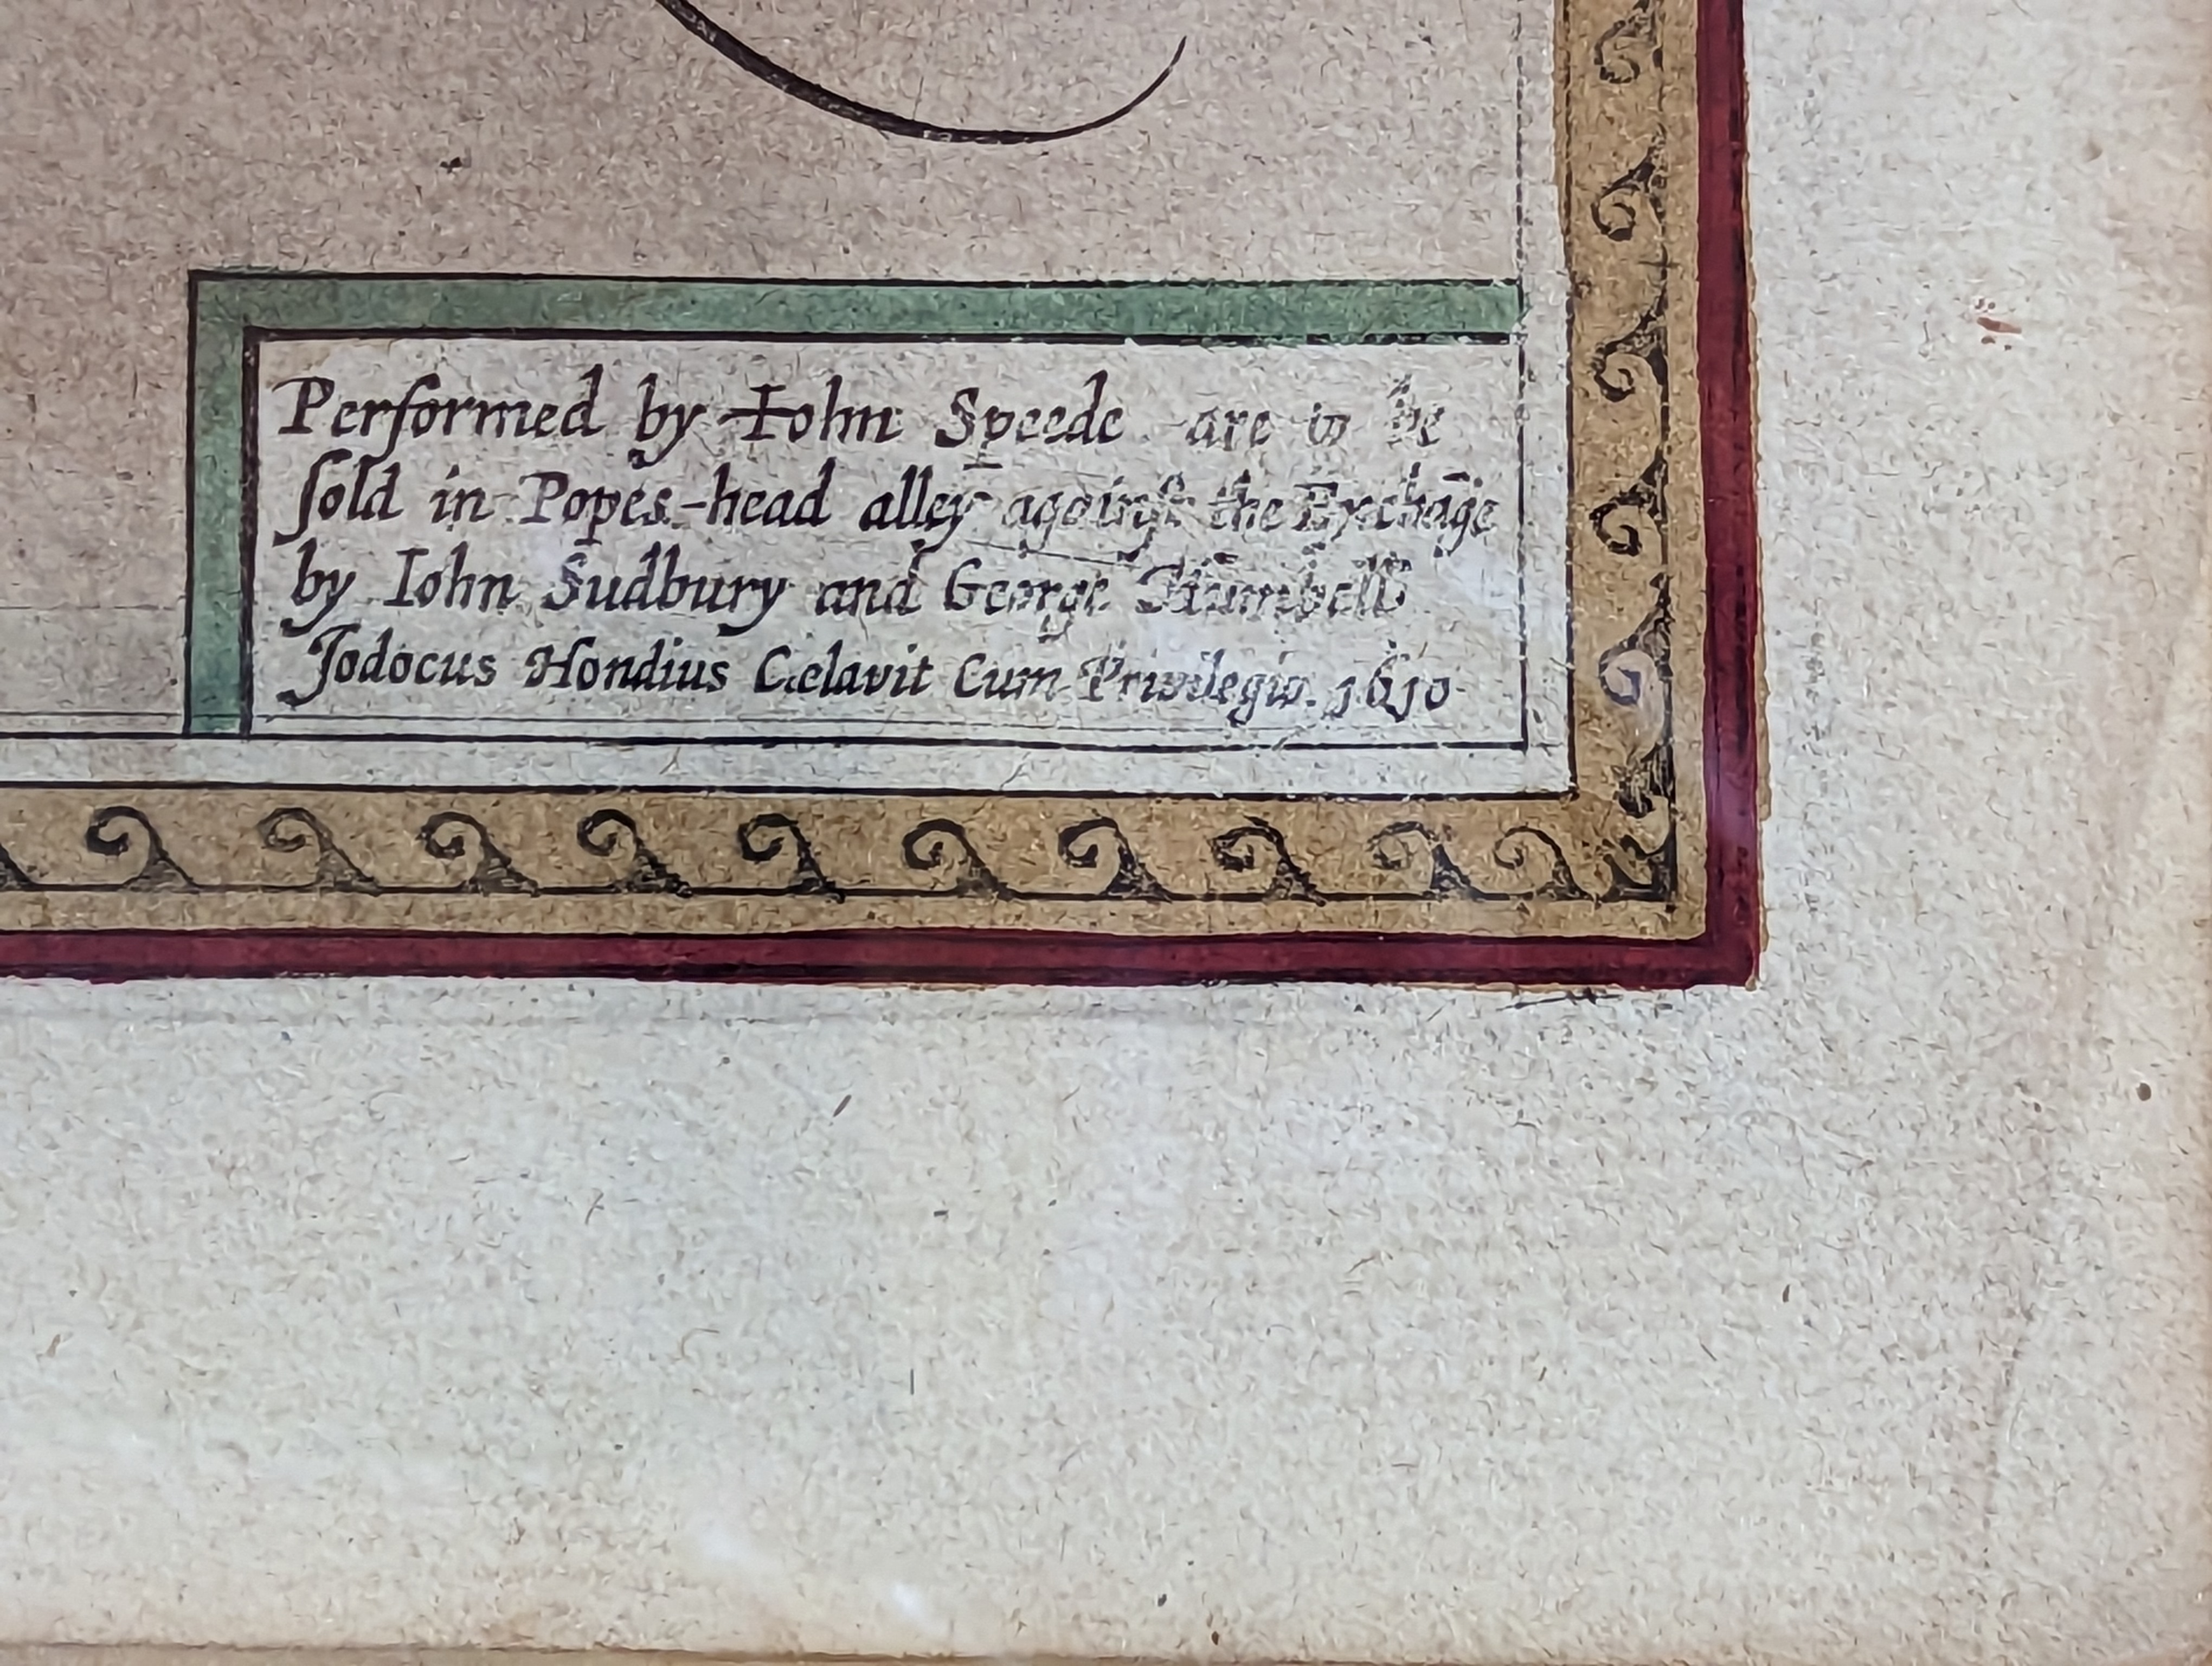 Performed by Iohn Speede are to be
ſold in Popes-head alley againſt the Exchāge
by Iohn Sudbury and George Humbell
Jodocus Hondius Cælavit Cum Privilegio. 1610